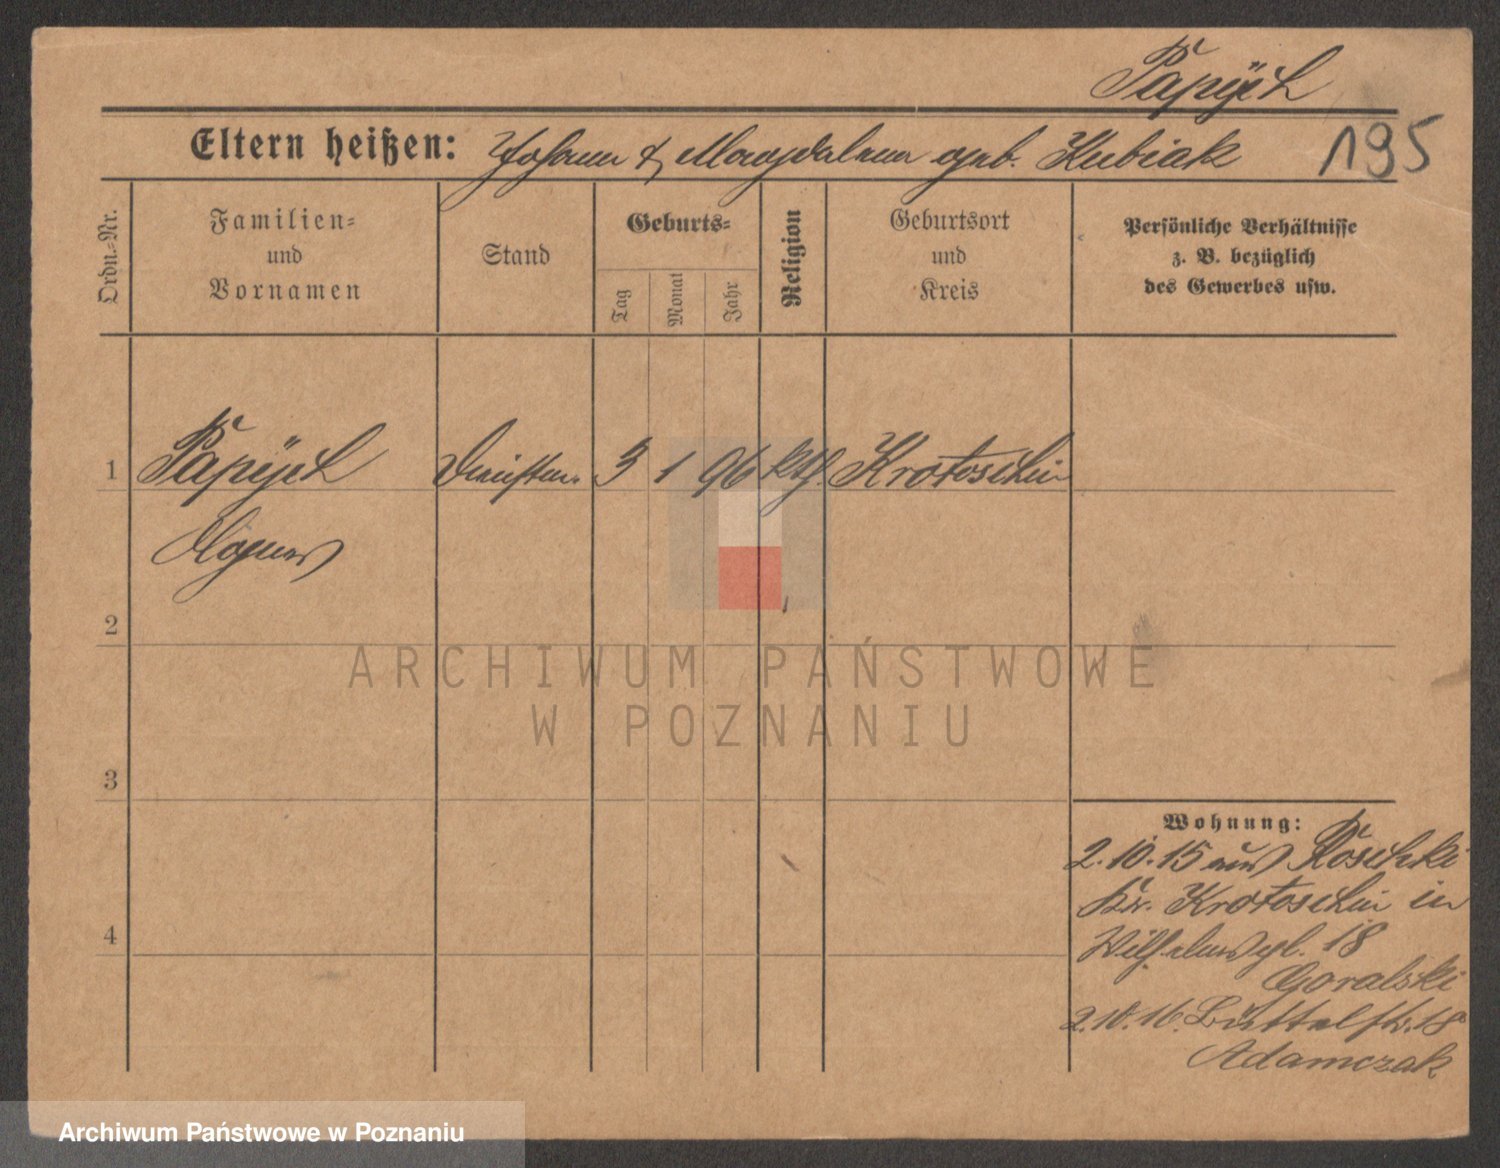 Papÿch
Eltern heißen: Johann & Magdalena geb. Kubiak 195
Ordn.-Nr.
Familien-
und
Vornamen
Stand
Geburts-
Tag
Monat
Jahr
Religion
Geburtsort
und
Kreis
Persönliche Verhältnisse
z. B. bezüglich
des Gewerbes usw.
1 Papÿch 3 1 96 kth. Krotoschin
Agnes
2
3
4
Wohnung:
2.10.15 aus Roschki
Kr. Krotoschin in
Wilhelmspl. 18
Goralski
2.10.16. Büttelstr. 18
Adamczak
ARCHIWUM PAŃSTWOWE
W POZNANIU
Archiwum Państwowe w Poznaniu